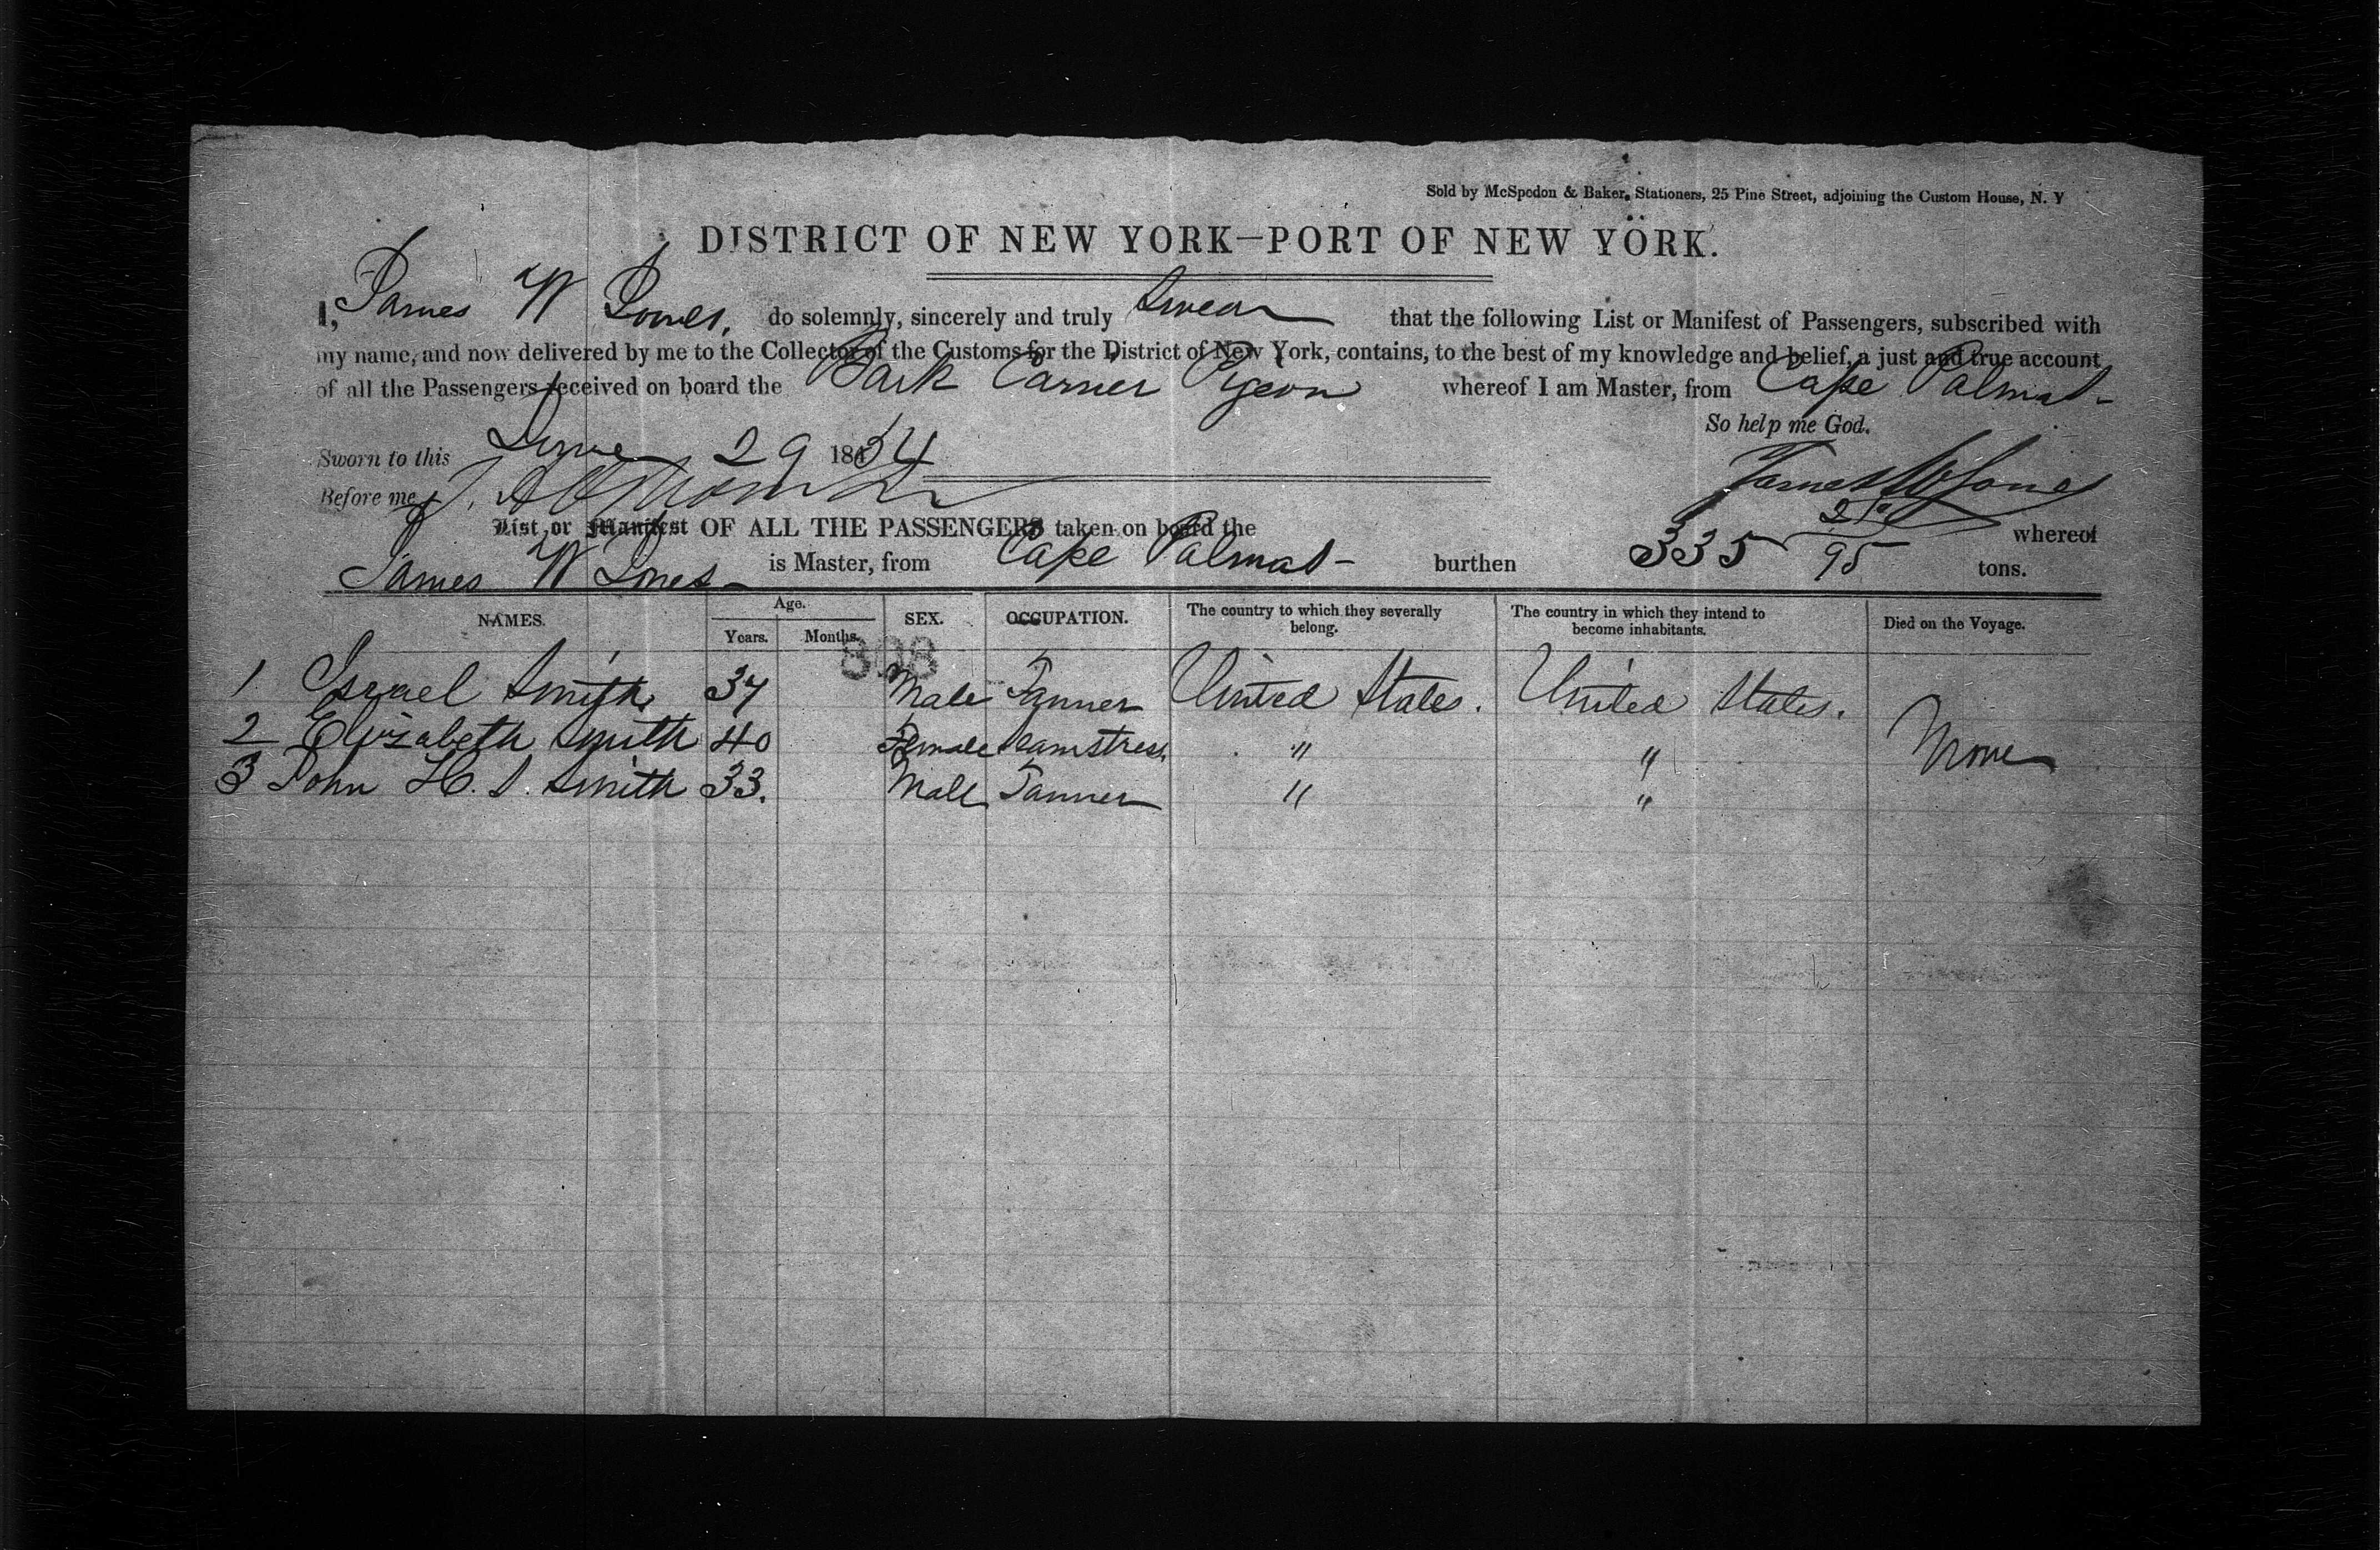 Sold by McSpedon & Baker, Stationers, 25 Pine Street, adjoining the Custom House, N. Y
DISTRICT OF NEW YORK—PORT OF NEW YORK.
I, James W Jones, do solemnly, sincerely and truly Swear that the following List or Manifest of Passengers, subscribed with
my name, and now delivered by me to the Collector of the Customs for the District of New York, contains, to the best of my knowledge and belief, a just and true account
of all the Passengers received on board the Bark Carrier Pigeon whereof I am Master, from Cape Palmas-
So help me God.
Sworn to this June 29 1854
James W Jones
Before me
List or Manifest OF ALL THE PASSENGERS taken on board the whereof
James W Jones is Master, from Cape Palmas- burthen 335 /95 tons.
NAMES. Age. Years. Months. SEX. OCCUPATION. The country to which they severally belong. The country in which they intend to become inhabitants. Died on the Voyage.
808
1 Israel Smith 37 Male Tanner United States. United States.
2 Elizabeth Smith 40 Female Seamstress " " None
3 John H. S. Smith 33. Male Tanner " "